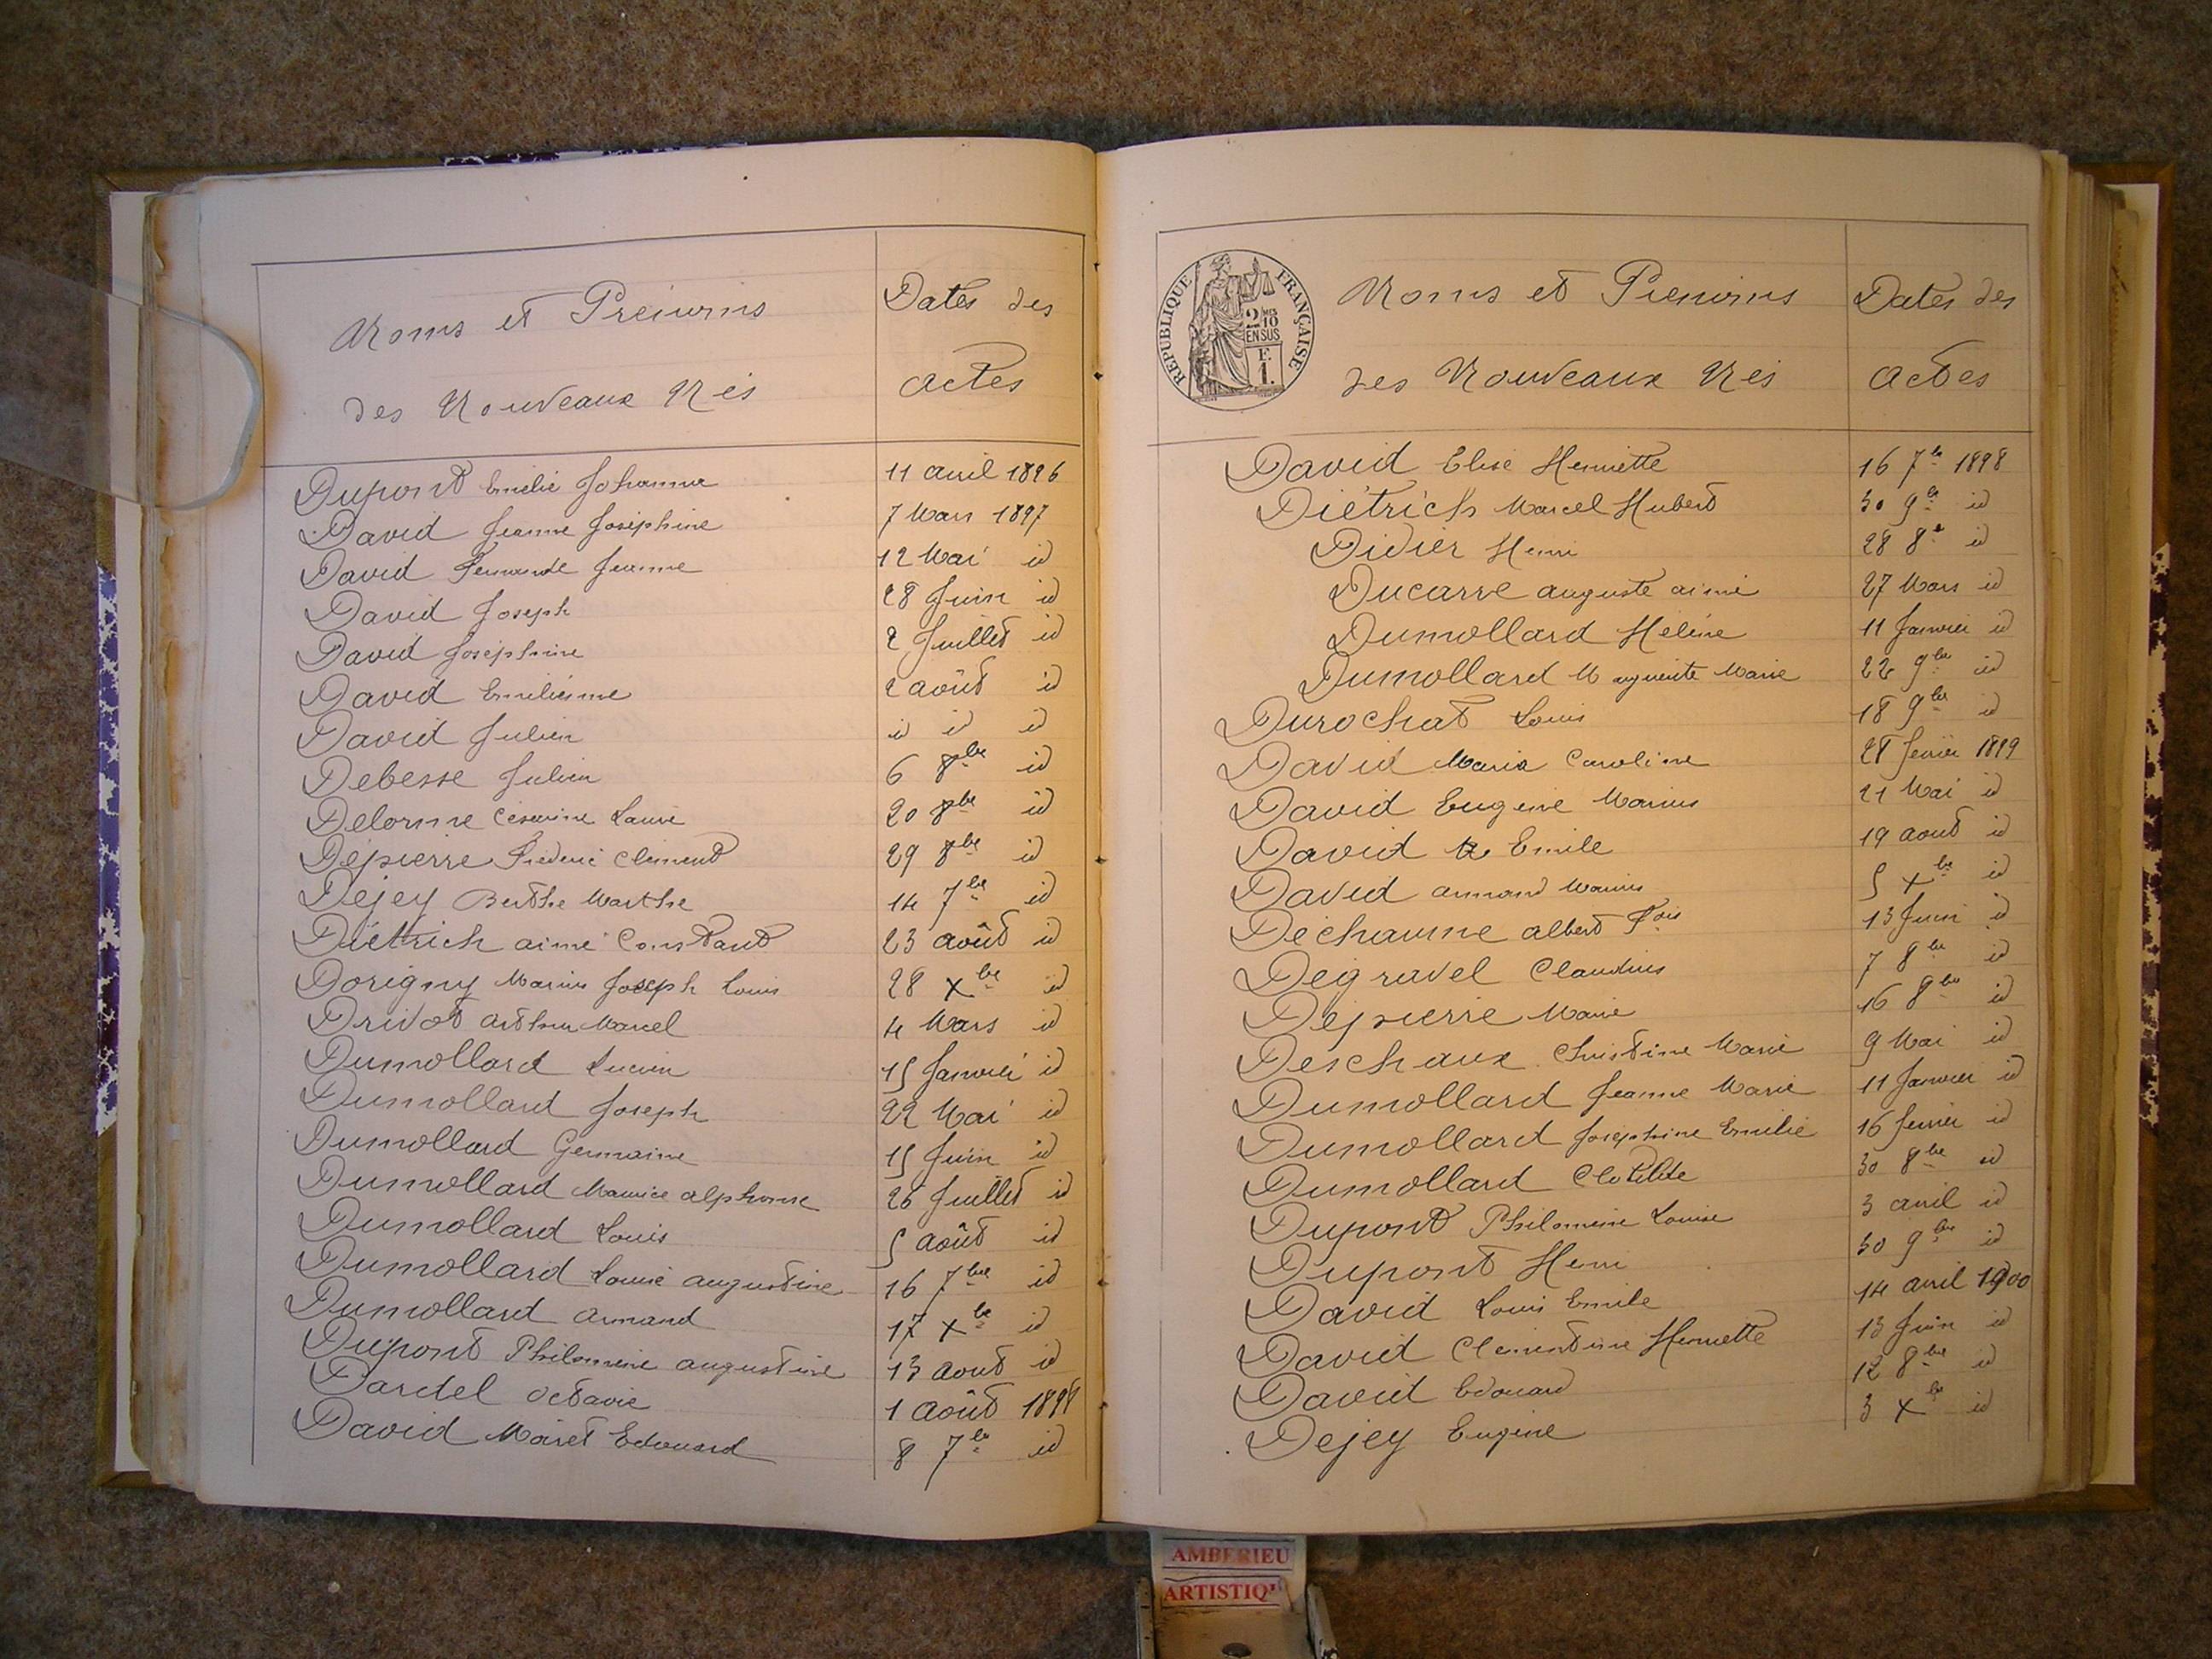 Noms et Prénoms Dates des
des Nouveaux Nés actes
Dupont Emélie Johanna 11 avril 1896
David Jeanne Joséphine 7 Mars 1897
David Fernande Jeanne 12 Mai id
David Joseph 28 Juin id
David Joséphine 2 Juillet id
David Emilienne 2 août id
David Julien id id id
Debesse Julien 6 8bre id
Delorme Césarine Laure 20 8bre id
Dépierre Fréderic Clément 29 8bre id
Dejey Berthe Marthe 14 7bre id
Diétrich aimé Constant 23 août id
Dorigny Marius Joseph Louis 28 Xbre id
Drivot arthur Marcel 4 Mars id
Dumollard Lucien 15 Janvier id
Dumollard Joseph 22 Mai id
Dumollard Germaine 15 Juin id
Dumollard Maurice alphonse 26 Juillet id
Dumollard Louis 5 août id
Dumollard Louise augustine 16 7bre id
Dumollard armand 17 Xbre id
Dupont Philomène augustine 13 août id
Dardel octavie 1 août 1898
David Edouard 8 7bre id
RÉPUBLIQUE FRANÇAISE
2 10
EN SUS
F.
1.
Noms et Prénoms Dates des
des Nouveaux Nés actes
David Elise Henriette 16 7bre 1898
Diétrich Marcel Hubert 30 9bre id
Didier Henri 28 8bre id
Ducarre auguste aimé 27 Mars id
Dumollard Hélène 11 Janvier id
Dumollard Marguerite Marie 22 9bre id
Durochat Louis 18 9bre id
David Maria Caroline 28 février 1899
David Eugène Marius 21 Mai id
David Emile 19 aout id
David armand Marius 5 Xbre id
Dechaume albert Fois 13 Juin id
Dégravel Claudius 7 8bre id
Dépierre Marie 16 8bre id
Deschaux Christine Marie 9 Mai id
Dumollard Jeanne Marie 11 Janvier id
Dumollard Joséphine Emélie 16 février id
Dumollard Clotilde 30 8bre id
Dupont Philomène Louise 3 avril id
Dupont Henri 30 9bre id
David Louis Emile 14 avril 1900
David Clémentine Henriette 13 Juin id
David Edouard 12 8bre id
Dejey Eugène 3 Xbre id
AMBERIEU
ARTISTIQU